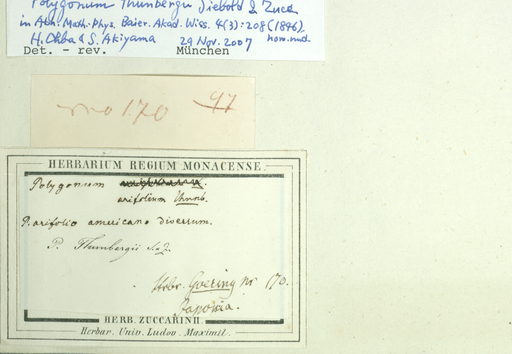 Polygonum Thunbergii Siebold & Zucc.
in Abh. Math.-Phys. Baier. Akad. Wiss. 4(3): 208 (1846).
H. Ohba & S. Akiyama 29 Nov. 2007 nom. nud.
Det. - rev. München
no 170 47
HERBARIUM REGIUM MONACENSE.
Polygonum
arifolium Thunb.
P. arifolio americano diversum.
P. Thunbergii S. & Z.
Hrbr. Goering nr 170.
Japonia.
HERB. ZUCCARINII.
Herbar. Univ. Ludov. Maximil.